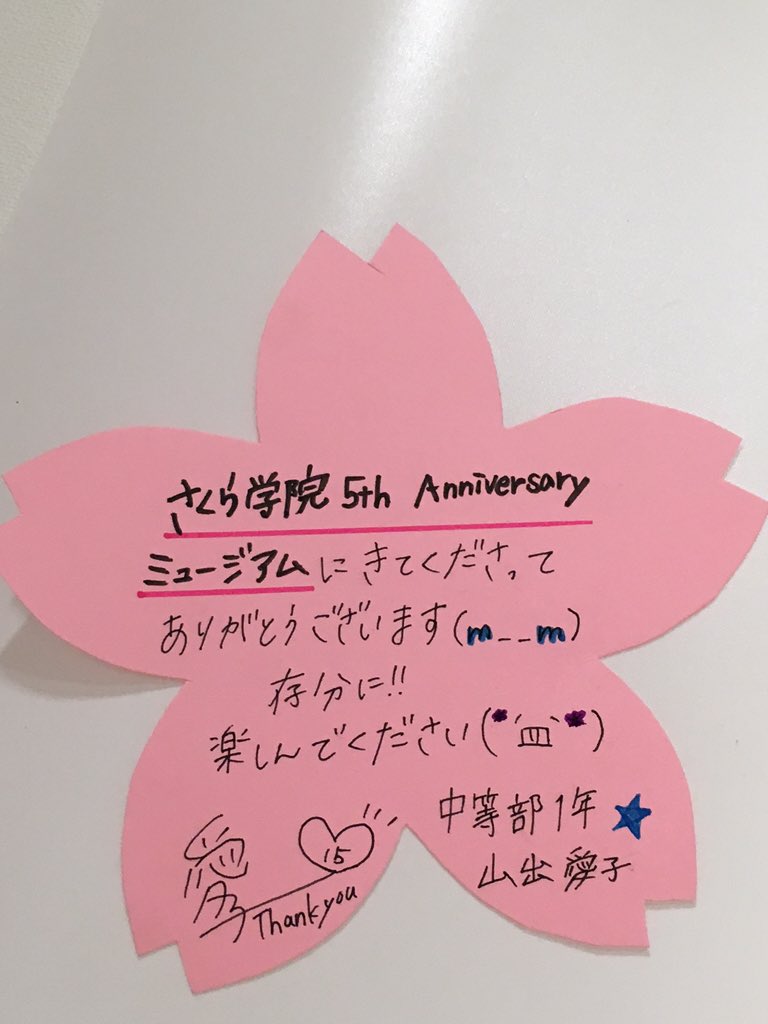 さくら学院 5th Anniversary
ミュージアムにきてくださって
ありがとうございます(m__m)
存分に!!
楽しんでください(*´皿`*)
中等部1年★
山出愛子
愛子
15
Thankyou